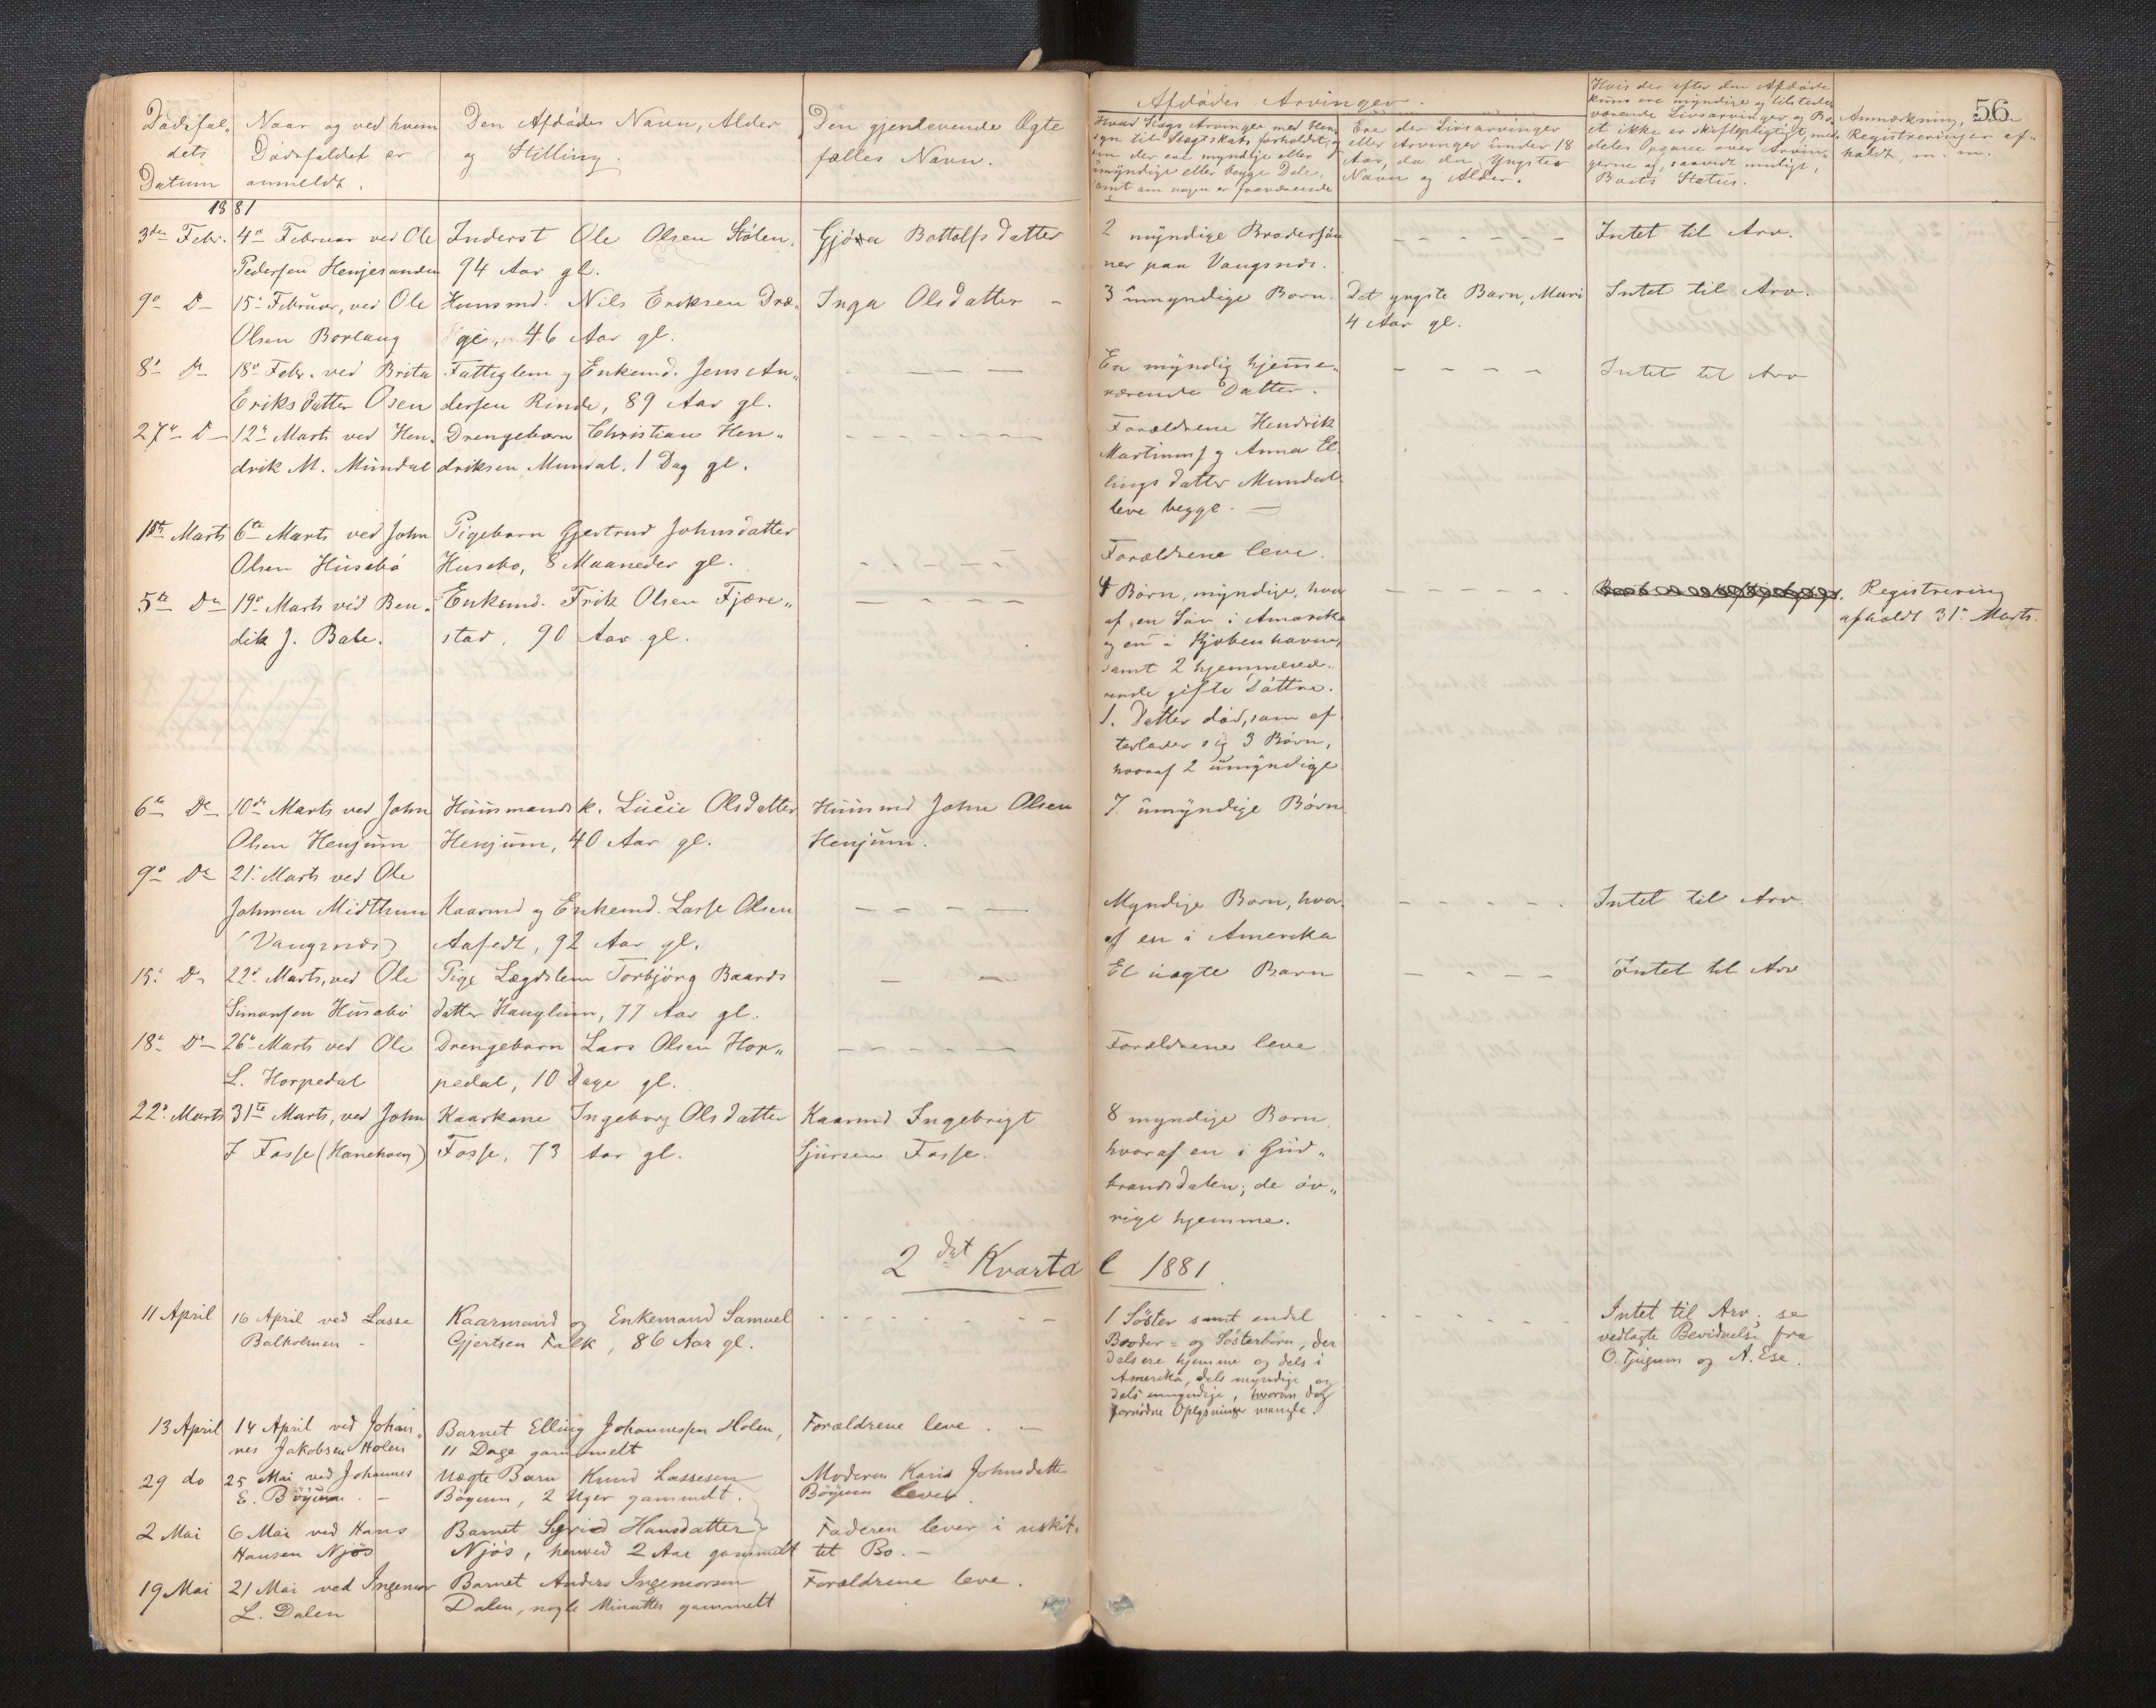 56.
Dødsfal-
dets
Datum
Naar og ved hvem
Dødsfaldet er
anmeldt.
Den Afdødes Navn, Alder
og Stilling.
Den gjenlevende Ægte
fælles Navn.
Afdødes Arvinger.
Hvad Slags Arvinger med Hen-
syn til Slægtskabsforholdet, og
om der ere myndige eller
umyndige eller begge Dele,
samt om nogen er fraværende
Ere der Livsarvinger
eller Arvinger under 18
Aar, da den Yngstes
Navn og Alder.
Hvis der efter den Afdøde
kuns ere myndige og tilstede-
værende Livsarvinger og Bo-
et ikke er skiftepligtigt, med-
deles Opgave over Arvin-
gerne og, saavidt muligt,
Boets Status.
Anmærkning,
Registreringer af-
holdt, m. m.
1881
3die Febr.
4de Februar ved Ole
Pedersen Henjesanden
Inderst Ole Olsen Stölen,
94 Aar gl.
Gjöra Bottolfsdatter
2 myndige Brodersön
ner paa Vangsnæs.
Intet til Arv.
9de Do
15de Februar, ved Ole
Olsen Borlaug
Husmd. Nils Eriksen Dræ-
gi, 46 Aar gl.
Inga Olsdatter -
3 umyndige Born.
Det yngste Barn, Mari
4 Aar gl.
Intet til Arv.
8de Do
18de Febr. ved Brita
Eriksdatter Osen
Fattiglem og Enkemd. Jens An-
dersen Rinde, 89 Aar gl.
En myndig hjemme-
værende Datter.
Intet til Arv
27de Do
12te Marts ved Hen-
drik M. Mundal
Drengebarn Christian Hen-
driksen Mundal. 1 Dag gl.
Forældrene Hendrik
Martinusf. og Anna El-
lingsdatter Mundal
leve begge.
1ste Marts
6te Marts ved John
Olsen Husebö
Pigebarn Gjertrud Johnsdatter
Husebo, 8 Maaneder gl.
Forældrene leve.
5te Do
19de Marts ved Ben-
dik J. Bale.
Enkemd. Frik Olsen Fjære-
stad, 90 Aar gl.
4 Børn, myndige, hvor
af en Søn i Amerika
og en i Kjøbenhavn,
samt 2 hjemmevæ-
rende gifte Døttre.
1. Datter död, som ef
terlader sig 3 Børn,
hvoraf 2 umyndige
Registrering
afholdt 31te Marts.
6te Do
10de Marts ved John
Olsen Henjum
Husmandsk. Lucie Olsdatter
Henjum, 40 Aar gl.
Husmd John Olsen
Henjum.
7. umyndige Børn
9de Do
21de Marts ved Ole
Johnsen Midthun
(Vangsnæs)
Kaarmd og Enkemd. Lasse Olsen
Aafedt, 92 Aar gl.
Myndige Børn, hvor
af en i Amerika
Intet til Arv.
15de Do
22de Marts, ved Ole
Simonsen Husebö
Pige Lægdslem Torbjörg Baards
datter Hauglum, 77 Aar gl.
Et uægte Barn
Intet til Arv
18de Do
26de Marts ved Ole
L. Horpedal
Drengebarn Lars Olsen Hor-
pedal, 10 Dage gl.
Forældrene leve
22de Marts
31te Marts, ved John
I Fosse (Hanehoug)
Kaarkone Ingeborg Olsdatter
Fosse, 73 Aar gl.
Kaarmd Ingebrigt
Sjursen Fosse.
8 myndige Børn
hvoraf en i Gud-
brandsdalen; de öv-
rige hjemme.
2det Kvartal 1881.
11 April
16 April ved Lasse
Balholmen -
Kaarmand og Enkemand Samuel
Gjertsen Falk, 86 Aar gl.
1 Söster samt endel
Broder- og Søsterbörn, der
dels ere hjemme og dels i
Amerika, dels myndige og
dels umyndige, hvorom dog
fornødne Oplysninger mangle.
Intet til Arv; se
vedlagte Bevidnelse fra
O. Tjugum og A. Ese.
13 April
14 April ved Johan-
nes Jakobsen Holen
Barnet Elling Johannessen Holen,
11 Dage gammelt
Forældrene leve. -
29 do
25 Mai ved Johannes
E. Böyum. -
Uægte Barn Knud Lassesen
Böyum, 2 Uger gammelt.
Moderen Karis Johnsdatter
Böyum lever.
2 Mai
6 Mai ved Hans
Hansen Njös
Barnet Sigrid Hansdatter
Njös, henved 2 Aar gammelt
Faderen lever i uskif-
tet Bo. -
19 Mai
21 Mai ved Ingemor
L. Dalen
Barnet Anders Ingemorsen
Dalen, nogle Minutter gammelt
Forældrene leve.